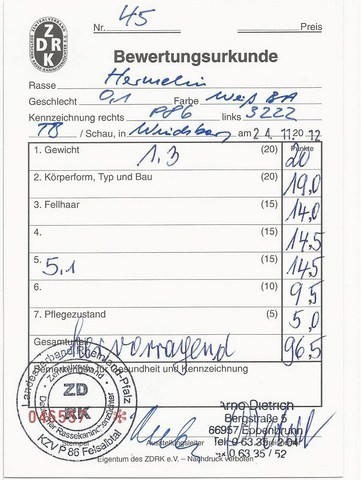 ZDRK
Nr. 45 Preis
Bewertungsurkunde
Rasse Hermelin
Geschlecht 0,1 Farbe Weiß BA
Kennzeichnung rechts P86 links 3222
TB / Schau, in am 24. 11. 20 12
Punkte
1. Gewicht 1.3 (20) 20
2. Körperform, Typ und Bau (20) 19,0
3. Fellhaar (15) 14,0
4. (15) 14,5
5. 5,1 (15) 14,5
6. (10) 9,5
7. Pflegezustand (5) 5,0
Gesamturteil hervorragend 96,5
Bemerkungen Gesundheit und Kennzeichnung
Landesverband Rheinland-Pfalz
ZDRK
Deutscher Rassekaninchenzüchter
KZV P 86 Felsalbtal
Arno Dietrich
Bergstraße 5
66957 Eppenbrunn
Tel. 0 63 35 / 2 04
0 63 35 / 52
Ausstellungsleiter
Eigentum des ZDRK e.V. – Nachdruck verboten